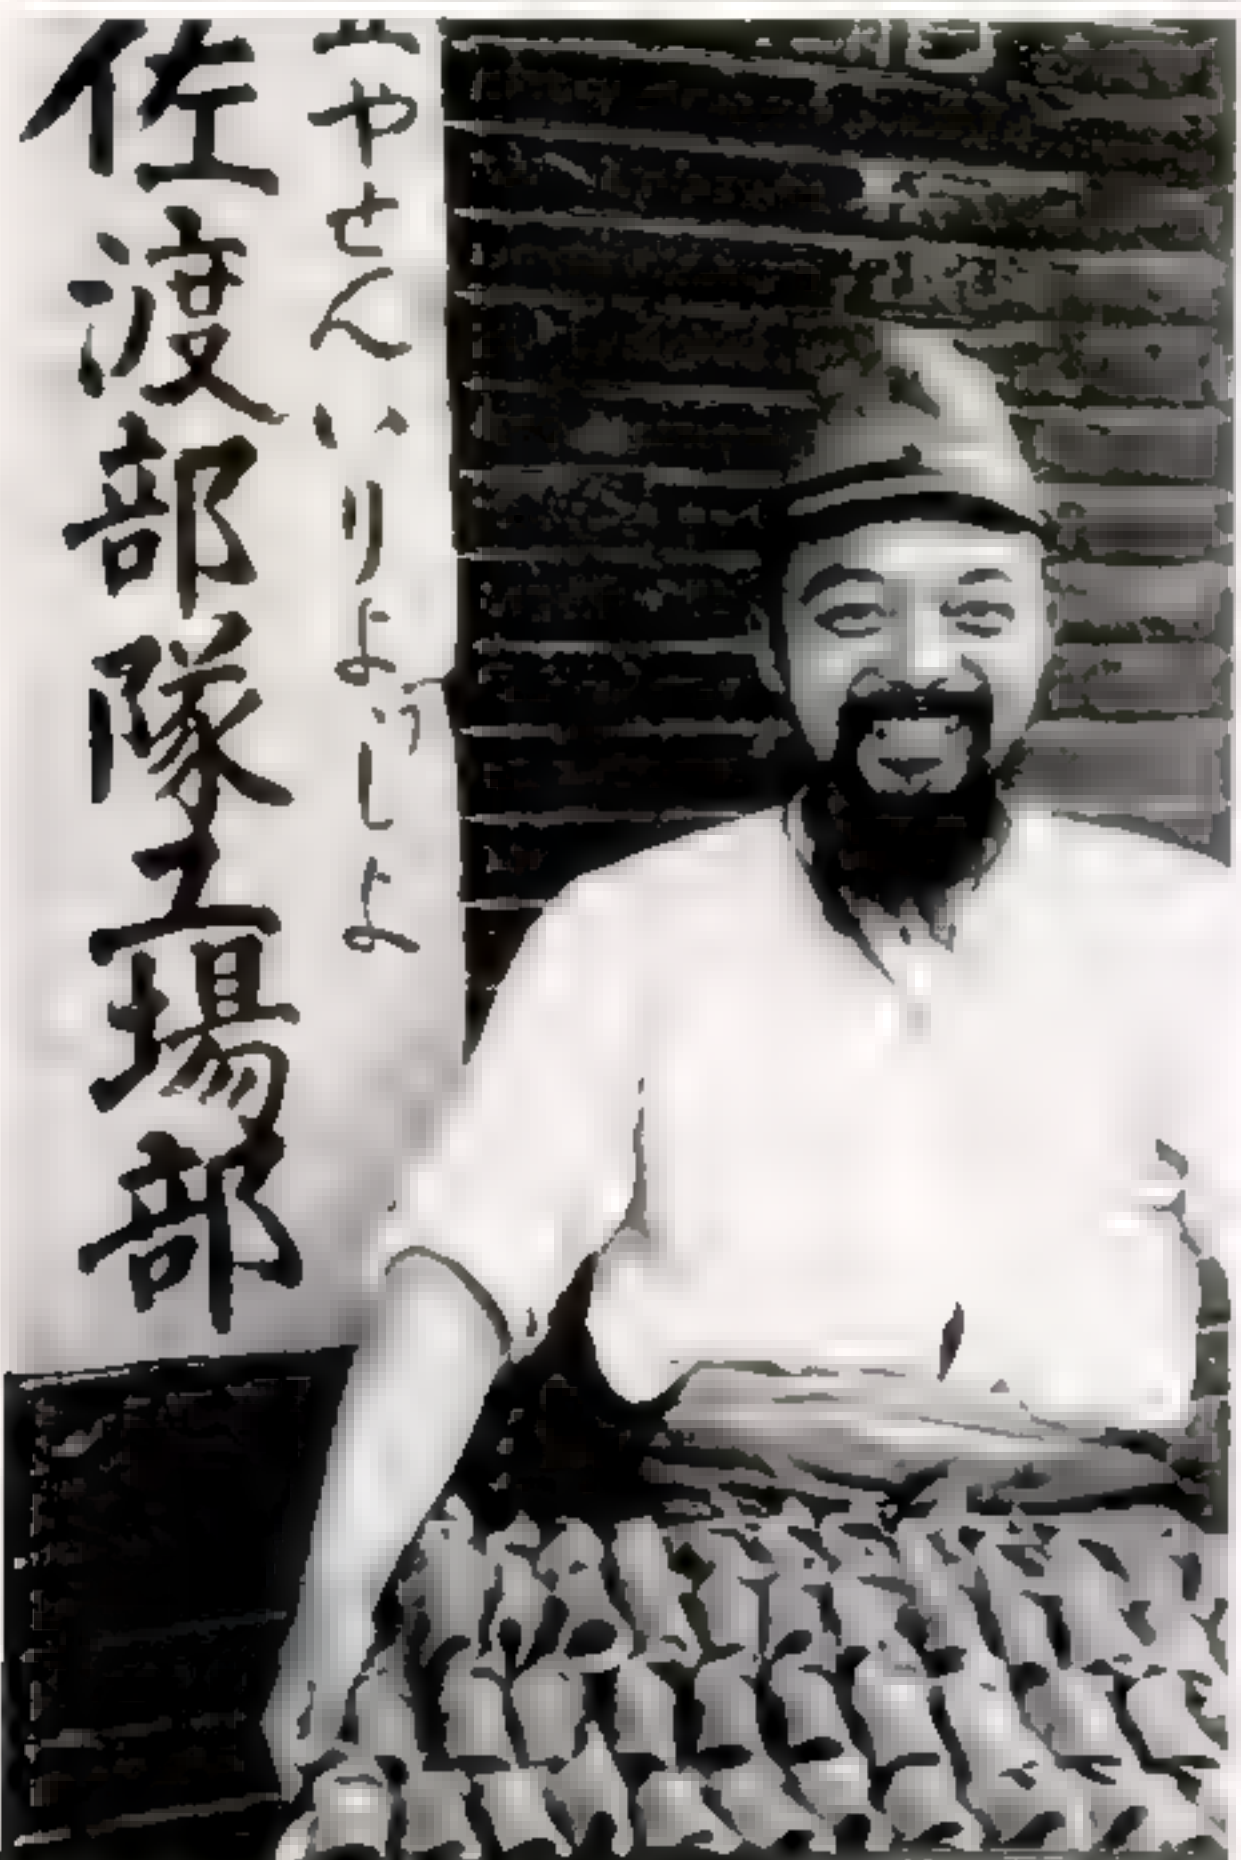 やせんいりようしよ
佐渡部隊工場部